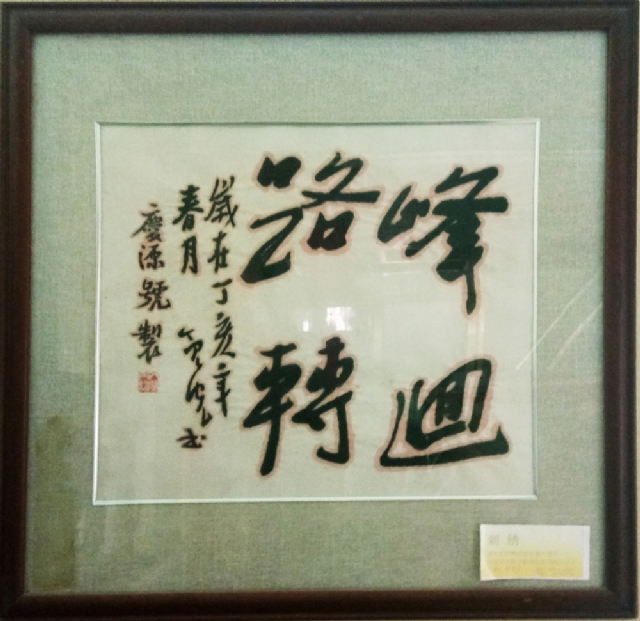 峰迴
路轉
歲在丁亥年
春月
慶源號製